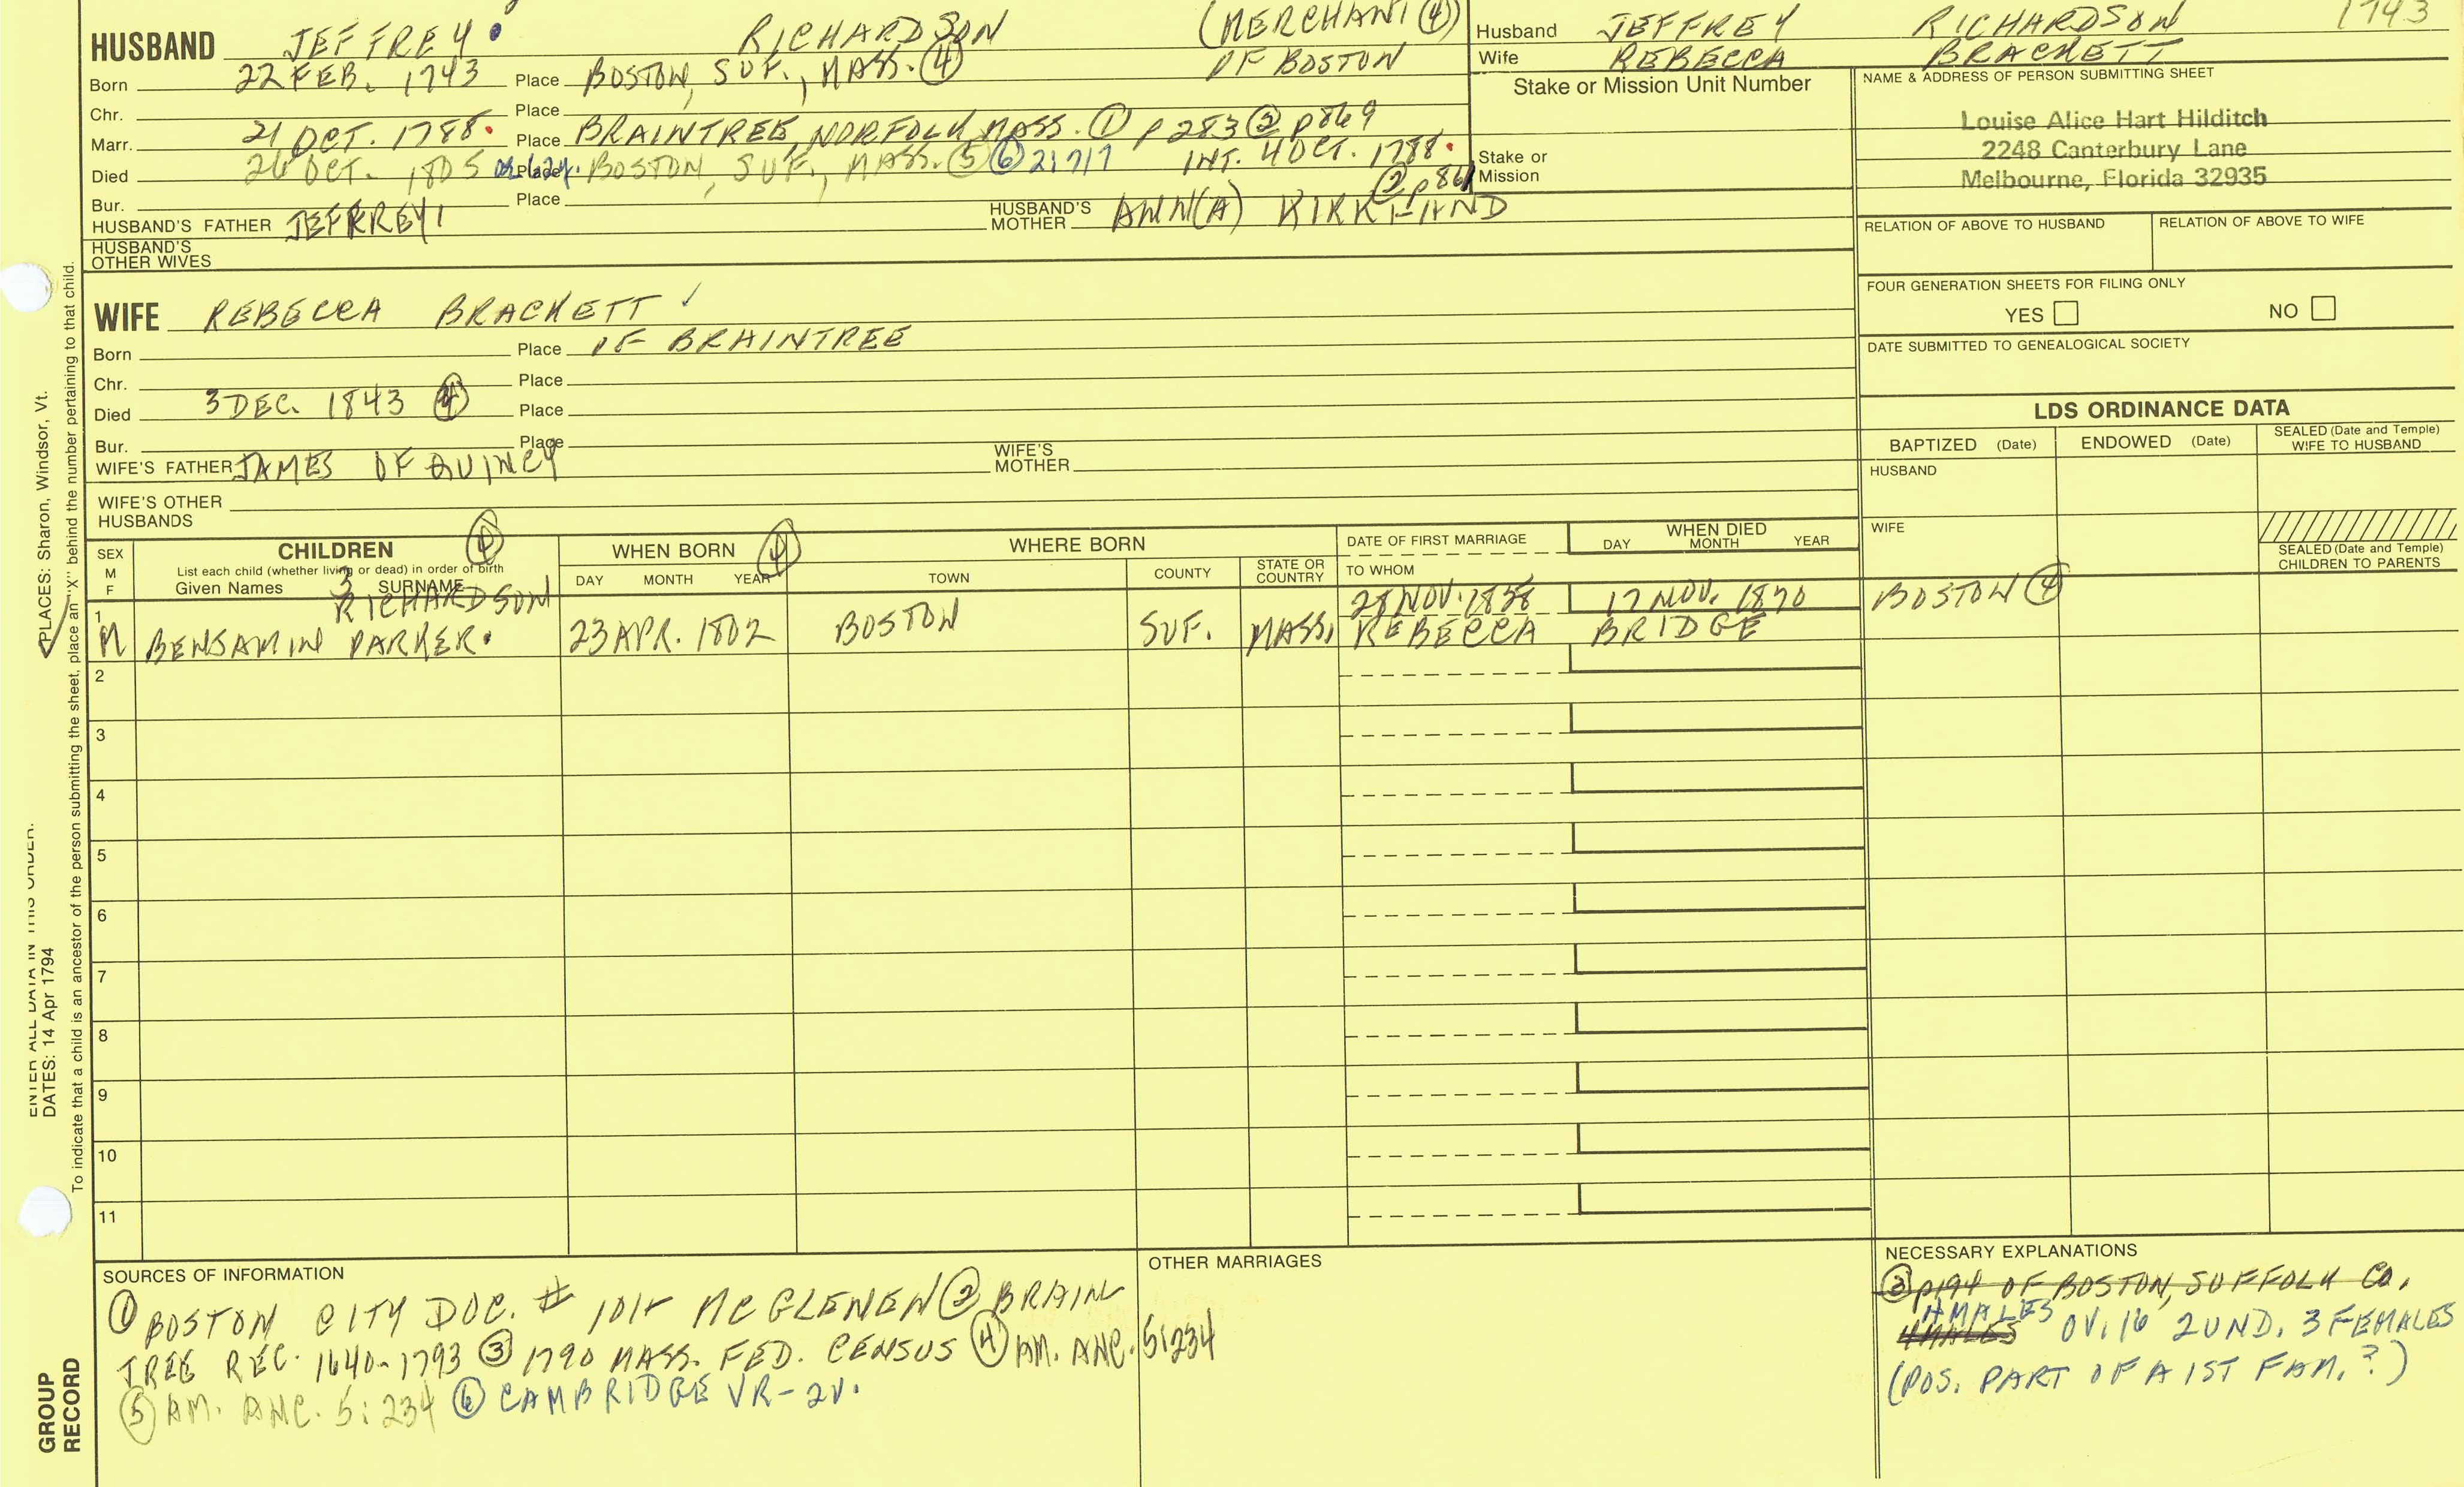 HUSBAND JEFFREY RICHARDSON (MERCHANT ④)
Born 22 FEB. 1743 Place BOSTON, SUF., MASS. ④ OF BOSTON
Chr. Place
Marr. 21 OCT. 1788 Place BRAINTREE, NORFOLK MASS. ① p 283 ② p 869
Died 26 OCT. 1805 Place BOSTON, SUF., MASS. ⑤ ⑥ 2:717 INT. 4 OCT. 1788
② p 861
Bur. Place
HUSBAND'S FATHER JEFFREY HUSBAND'S MOTHER ANN(A) KIRKLAND
HUSBAND'S OTHER WIVES
Husband JEFFREY RICHARDSON 1743
Wife REBECCA BRACKETT
Stake or Mission Unit Number
Stake or Mission
NAME & ADDRESS OF PERSON SUBMITTING SHEET
Louise Alice Hart Hilditch
2248 Canterbury Lane
Melbourne, Florida 32935
RELATION OF ABOVE TO HUSBAND RELATION OF ABOVE TO WIFE
FOUR GENERATION SHEETS FOR FILING ONLY
YES NO
DATE SUBMITTED TO GENEALOGICAL SOCIETY
WIFE REBECCA BRACKETT ✓
Born Place OF BRAINTREE
Chr. Place
Died 3 DEC. 1843 ④ Place
Bur. Place
WIFE'S FATHER JAMES OF QUINCY WIFE'S MOTHER
WIFE'S OTHER HUSBANDS
LDS ORDINANCE DATA
BAPTIZED (Date) ENDOWED (Date) SEALED (Date and Temple) WIFE TO HUSBAND
HUSBAND
WIFE
SEALED (Date and Temple) CHILDREN TO PARENTS
SEX M F
CHILDREN ④
List each child (whether living or dead) in order of birth
Given Names SURNAME
WHEN BORN ④
DAY MONTH YEAR
WHERE BORN
TOWN COUNTY STATE OR COUNTRY
DATE OF FIRST MARRIAGE
TO WHOM
WHEN DIED
DAY MONTH YEAR
1 RICHARDSON 28 NOV. 1858 17 NOV. 1870 BOSTON ④
M BENJAMIN PARKER. 23 APR. 1802 BOSTON SUF. MASS. REBECCA BRIDGE
2
3
4
5
6
7
8
9
10
11
SOURCES OF INFORMATION
① BOSTON CITY DOC. # 101 MCGLENEN ② BRAIN
TREE REC. 1640-1793 ③ 1790 MASS. FED. CENSUS ④ AM. ANC. 5:234
⑤ AM. ANC. 5:234 ⑥ CAMBRIDGE VR-2V.
OTHER MARRIAGES
NECESSARY EXPLANATIONS
③ p194 OF BOSTON, SUFFOLK CO.
4 MALES
4 MALES OV. 16 2 UND. 3 FEMALES
(POS. PART OF A 1ST FAM.?)
ENTER ALL DATA IN THIS ORDER:
DATES: 14 Apr 1794 PLACES: Sharon, Windsor, Vt.
To indicate that a child is an ancestor of the person submitting the sheet, place an "X" behind the number pertaining to that child.
GROUP RECORD